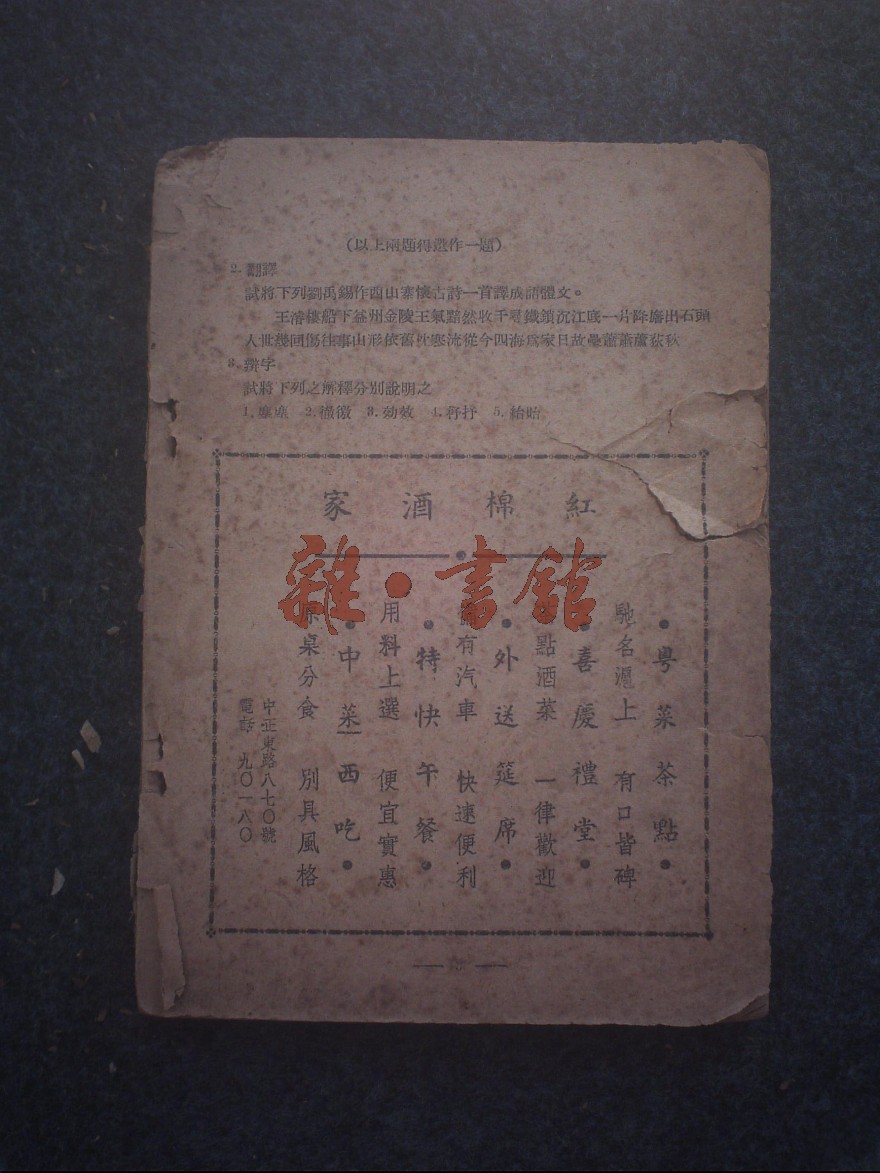 (以上兩題得選作一題)
2. 翻譯
試將下列劉禹錫作西山塞懷古詩一首譯成語體文。
王濬樓船下益州金陵王氣黯然收千尋鐵鎖沉江底一片降旛出石頭
人世幾回傷往事山形依舊枕寒流從今四海為家日故壘蕭蕭蘆荻秋
3. 辨字
試將下列之解釋分別說明之
2. 徹徵 3. 効效 5. 給貽
紅棉酒家
雜·書館
•粵菜茶點•
馳名滬上 有口皆碑
•喜慶禮堂•
點酒菜 一律歡迎
•外送筵席•
有汽車 快速便利
•特快午餐•
用料上選 便宜實惠
•中菜西吃•
桌分食 別具風格
中正東路八七〇號
電話 九〇一八〇